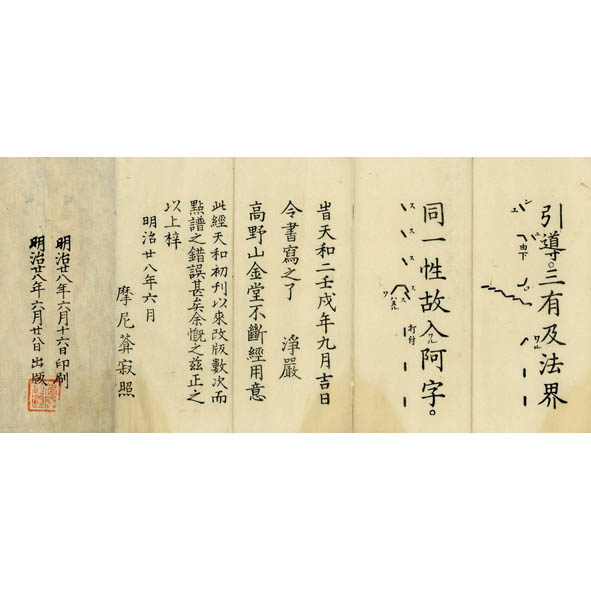 引導。三有及法界
シ
エ
由下
ワル
同一性故入阿字。
ス
ス
ス
ス
ス
ワル
打付
旹天和二壬戌年九月吉日
令書寫之了　淨嚴
高野山金堂不斷經用意
此經天和初刊以來改版數次而
點譜之錯誤甚矣余慨之茲正之
以上梓
明治廿八年六月
摩尼葊寂照
明治廿八年六月十六日印刷
明治廿八年六月廿八日出版